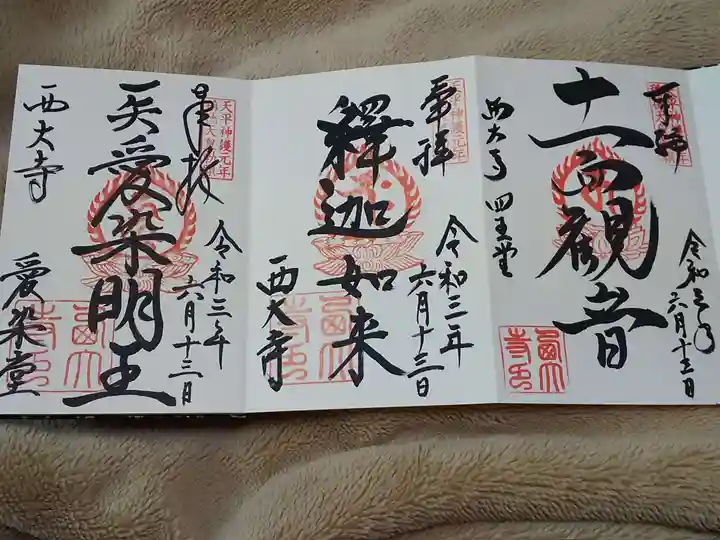 奉拝
十一面観音
西大寺 四王堂
六月十三日
奉拝
天平神護元年
釋迦如来
令和三年
六月十三日
西大寺
奉拝
天平神護元年
愛染明王
令和三年
六月十三日
西大寺
愛染堂